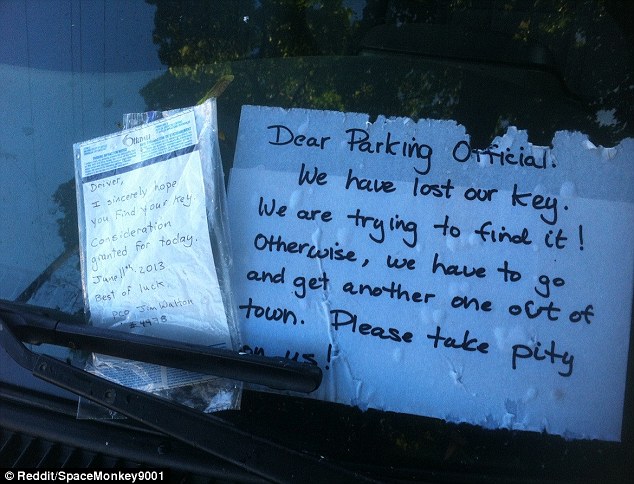 Driver,
I sincerely hope
you find your key.
Consideration
granted for today.
June 11th, 2013
Best of luck.
PCO Jim Walton
#4978
Dear Parking Official.
We have lost our key.
We are trying to find it!
Otherwise, we have to go
and get another one out of
town. Please take pity
on us!
© Reddit/SpaceMonkey9001